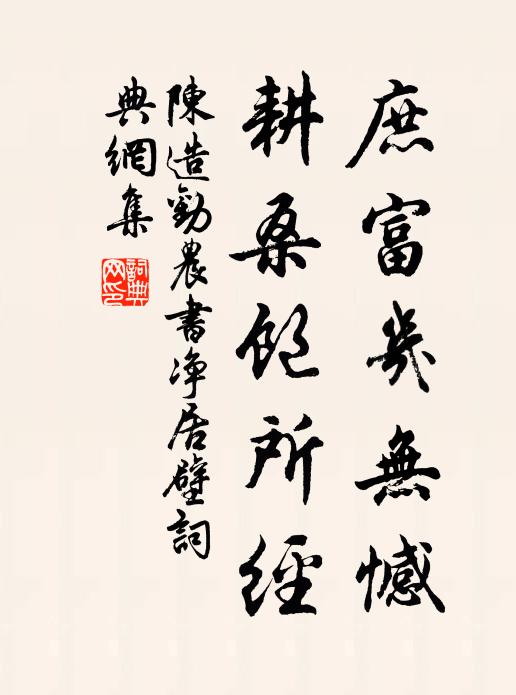 庶富幾無憾
耕桑飽所經
陳造勸農書净居壁詞
典網集
詞典網印